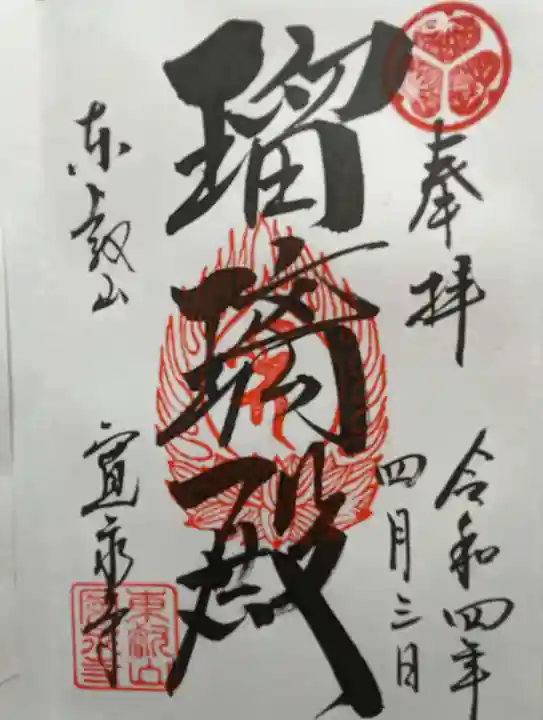 奉拝
令和四年
四月三日
瑠璃殿
東叡山
寛永寺
東叡山